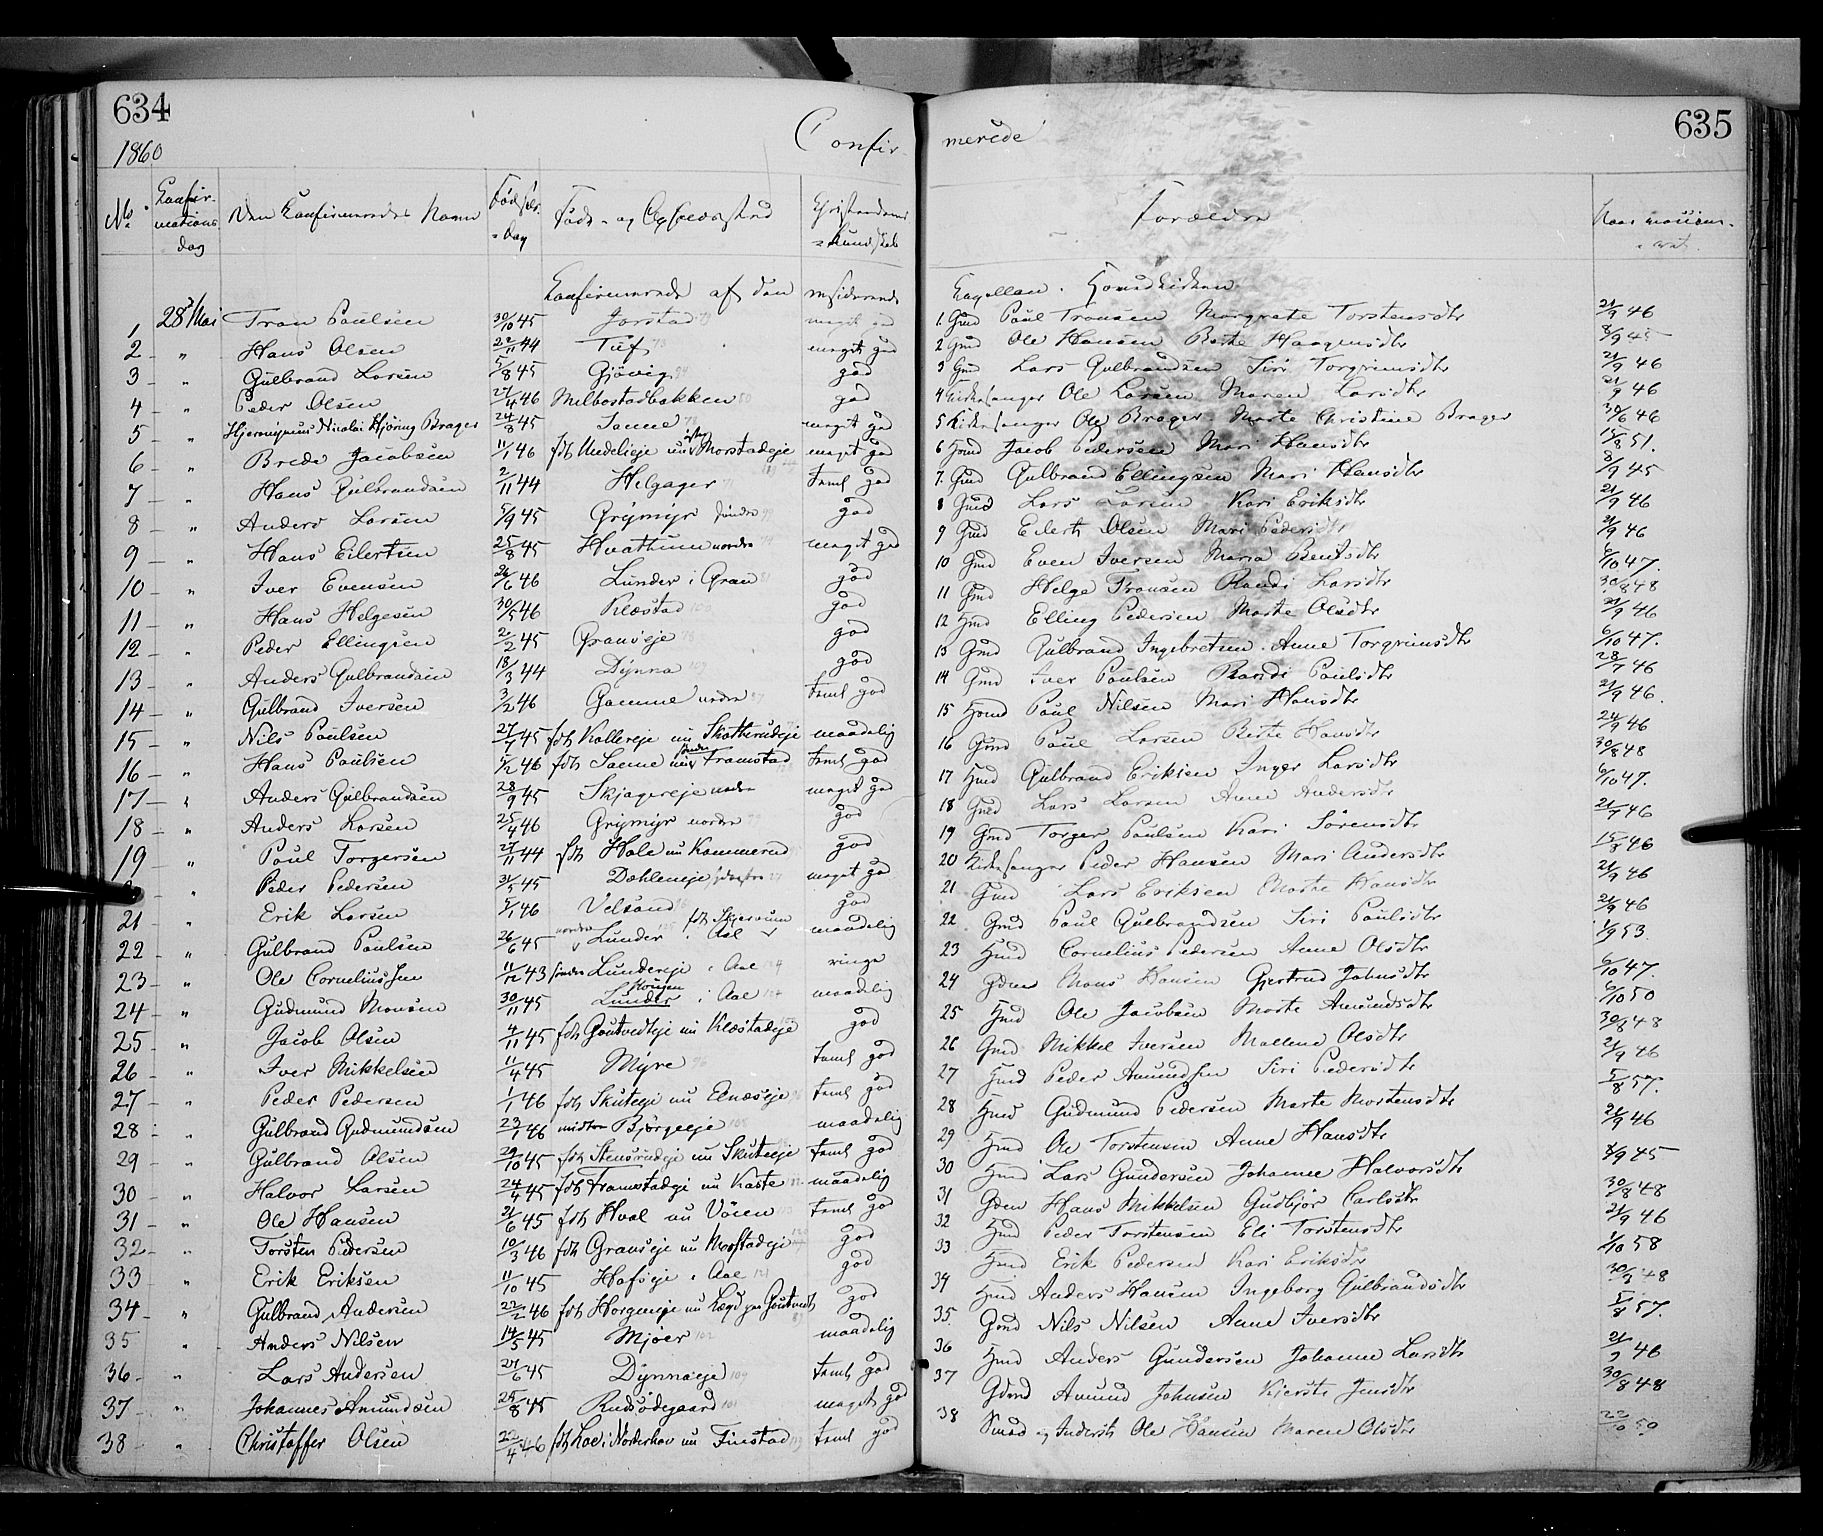 634
1860
Confir-
No. Konfir-mations dag Den Konfirmeredes Navn Fødsels-Dag Føde- og Opholdssted Christendoms-Kundskab
Konfirmerede af den residerende
1 28de Mai Tron Paulsen 30/10 45 Jorstad meget god
2 - " Hans Olsen 22/11 44 Tuf meget god
3 - " Gulbrand Larsen 5/8 45 Gjøvig god
4 - " Peder Olsen 27/4 46 Melbostadbakken god
5 - " Hjeronymus Nicolai Hjøring Brager 24/3 45 Sanne meget god
6 - " Brede Jacobsen 11/1 46 fdt. Undelieje nu Morstadeje meget god
7 - " Hans Gulbrandsen 2/11 44 Helgager teml. god
8 - " Anders Larsen 5/9 45 Grymyr søndre god
9 - " Hans Eilertsen 25/8 45 Hvattum nordre meget god
10 - " Iver Evensen 26/6 46 Lunder i Gran god
11 - " Hans Helgesen 30/5 46 Klæstad god
12 - " Peder Ellingsen 2/2 45 Granseje god
13 - " Anders Gulbrandsen 18/3 44 Dynna god
14 - " Gulbrand Iversen 3/2 46 Gamme nordre teml. god
15 - " Nils Paulsen 27/7 45 fdt. Kollereje nu Skatterudeje maadelig
16 - " Hans Paulsen 5/2 46 fdt. Sanne nu søndre Framstad teml. god
17 - " Anders Gulbrandsen 28/9 45 Skjagereje nordre meget god
18 - " Anders Larsen 25/4 46 Grymyr nordre god
19 - " Paul Torgersen 27/11 44 fdt. Hole nu Kammerud god
" Peder Pedersen 31/5 45 Dæhleneje meget god
21 - " Erik Larsen 5/1 46 Velsand god
22 - " Gulbrand Paulsen 26/6 45 nordre Lunder i Aal fdt. Skjervum maadelig
23 - " Ole Corneliussen 11/12 43 søndre Lundereje i Aal ringe
24 - " Gudmund Monsen 30/11 45 Lunder i Aal maadelig
25 - " Jacob Olsen 4/11 45 fdt. Goutvedteje nu Klæstadeje god
26 - " Iver Mikkelsen 11/4 45 Myre teml. god
27 - " Peder Pedersen 1/1 46 fdt. Skuteeje nu Elnæseje teml. god
28 - " Gulbrand Gudmundsen 23/1 46 midtre Bjørgeeje maadelig
29 - " Gulbrand Olsen 29/10 45 fdt. Stensrudeje nu Skuteeje teml. god
30 - " Halvor Larsen 24/4 45 fdt. Framstadeje nu Kaste maadelig
31 - " Ole Hansen 21/6 45 fdt. Hval nu Vøien teml. god
32 - " Torsten Pedersen 10/3 46 fdt. Granseje nu Morstadeje god
33 - " Erik Eriksen 11/10 45 Hofseje i Aal god
34 - " Gulbrand Andersen 22/2 46 fdt. Horgeneje nu Lægd paa Goutvedt god
35 " Anders Nilsen 14/5 45 Mjøer maadelig
36 - " Lars Andersen 27/6 45 Dynnaeje teml. god
37 - " Johannes Amundsen 25/8 45 Rudsødegaard meget god
38 - " Christoffer Olsen 22/4 46 fdt. Loe i Norderhov nu Finstad teml. god
635
merede
Forældre
Kapellan. Hovedkirken
1. Gmd Paul Tronsen Margrete Torstensdtr 21/9 46
2 Gmd Ole Hansen Berte Haagensdtr 8/9 45
3 Gmd Lars Gulbrandsen Siri Torgrimsdtr 21/9 46
4 Kirkesanger Ole Larsen Maren Larsdtr 21/9 46
5 Kirkesanger Ole Brager Marte Christine Brager 30/6 46
6 Hmd Jacob Pedersen Mari Hansdtr 15/8 51.
7. Gmd Gulbrand Ellingsen Mari Hansdtr 8/9 45
8 Gmd Lars Larsen Kari Eriksdtr 21/9 46
9 Gmd Eilert Olsen Mari Pedersdtr 21/9 46
10 Gmd Even Iversen Maria Bentsdtr 6/10 47.
11 Gmd Helge Tronsen Randi Larsdtr 30/8 48
12 Hmd Elling Pedersen Marte Olsdtr 21/9 46
13 Gmd Gulbrand Ingebretsen Anne Torgrimsdtr 6/10 47.
14 Gmd Iver Paulsen Randi Paulsdtr 28/7 46
15 Hmd Paul Nilsen Mari Hansdtr 21/9 46.
16 Gmd Paul Larsen Berte Hansdtr 24/9 46
17 Hmd Gulbrand Eriksen Inger Larsdtr 30/8 48
18 Gmd Lars Larsen Anne Andersdtr 6/10 47.
19 Gmd Torger Paulsen Kari Sørensdtr 21/7 46
20 Kirkesanger Peder Hansen Mari Andersdtr 15/8 46
21 Gmd Lars Eriksen Marte Hansdtr 21/9 46
22 Gmd Paul Gulbrandsen Siri Paulsdtr 21/9 46
23 Hmd Cornelius Pedersen Anne Olsdtr 1/9 53.
24 Gdm Mons Hansen Gjertrud Johnsdtr 6/10 47.
25 Hmd Ole Jacobsen Marte Amundsdtr 6/10 50
26 Gmd Mikkel Iversen Mallene Olsdtr 30/8 48
27 Hmd Peder Amundsen Siri Pedersdtr 21/9 46
28 Hmd Gudmund Pedersen Marte Mortensdtr 5/8 57.
29 Hmd Ole Torstensen Anne Hansdtr 21/9 46
30 Hmd Lars Gundersen Johanne Halvorsdtr 8/9 45
31 Gdm Hans Mikkelsen Gudbjør Carlsdtr 30/8 48
32 Hmd Peder Torstensen Eli Torstensdtr 21/9 46
33 Hmd Erik Pedersen Kari Eriksdtr 1/10 58
34 Hmd Anders Hansen Ingeborg Gulbrandsdtr 30/8 48
35. Gmd Nils Nilsen Anne Iversdtr 5/8 57.
36 Hmd Anders Gundersen Johanne Larsdtr 21/9 46
37 Gdmd Amund Johnsen Kjersti Jensdtr 30/8 48
38 Smed og Inderst Ole Hansen Maren Olsdtr 22/10 50